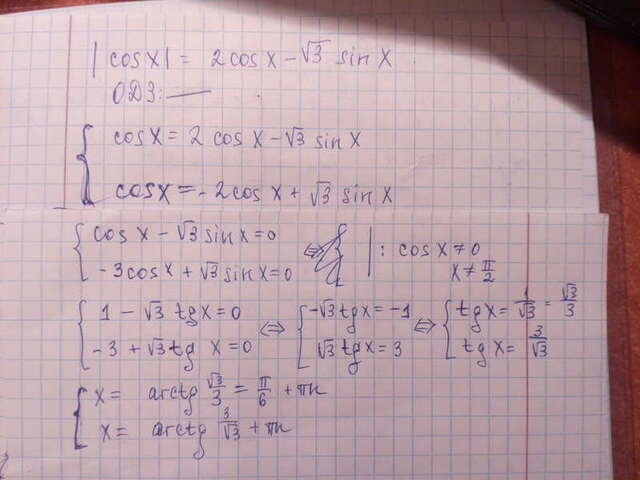 |cosx| = 2cosx - √3 sinx
ОДЗ: —
{ cosx = 2cosx - √3 sinx
cosx = -2cosx + √3 sinx
{ cosx - √3 sinx = 0
-3cosx + √3 sinx = 0 ⇔ | : cosx ≠ 0
x ≠ π/2
{ 1 - √3 tgx = 0
-3 + √3 tg x = 0 ⇔ { -√3 tgx = -1
√3 tgx = 3 ⇔ { tgx = 1/√3 = √3/3
tgx = 3/√3
{ x = arctg √3/3 = π/6 + πn
x = arctg 3/√3 + πn